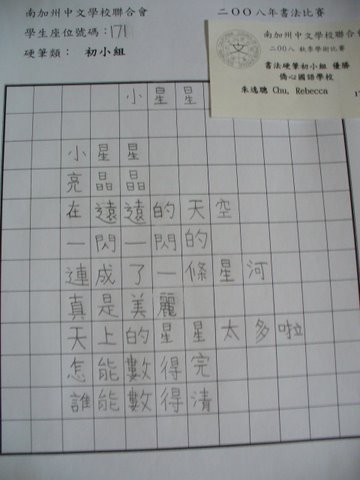 南加州中文學校聯合會 二〇〇八年書法比賽
學生座位號碼：171
硬筆類： 初小組
南加州中文學校聯合會
二〇〇八 秋季學術比賽
書法硬筆初小組 優勝
僑心國語學校
朱逸聰 Chu, Rebecca
小星星
小星星
亮晶晶
在遠遠的天空
一閃一閃的
連成了一條星河
真是美麗
天上的星星太多啦
怎能數得完
誰能數得清